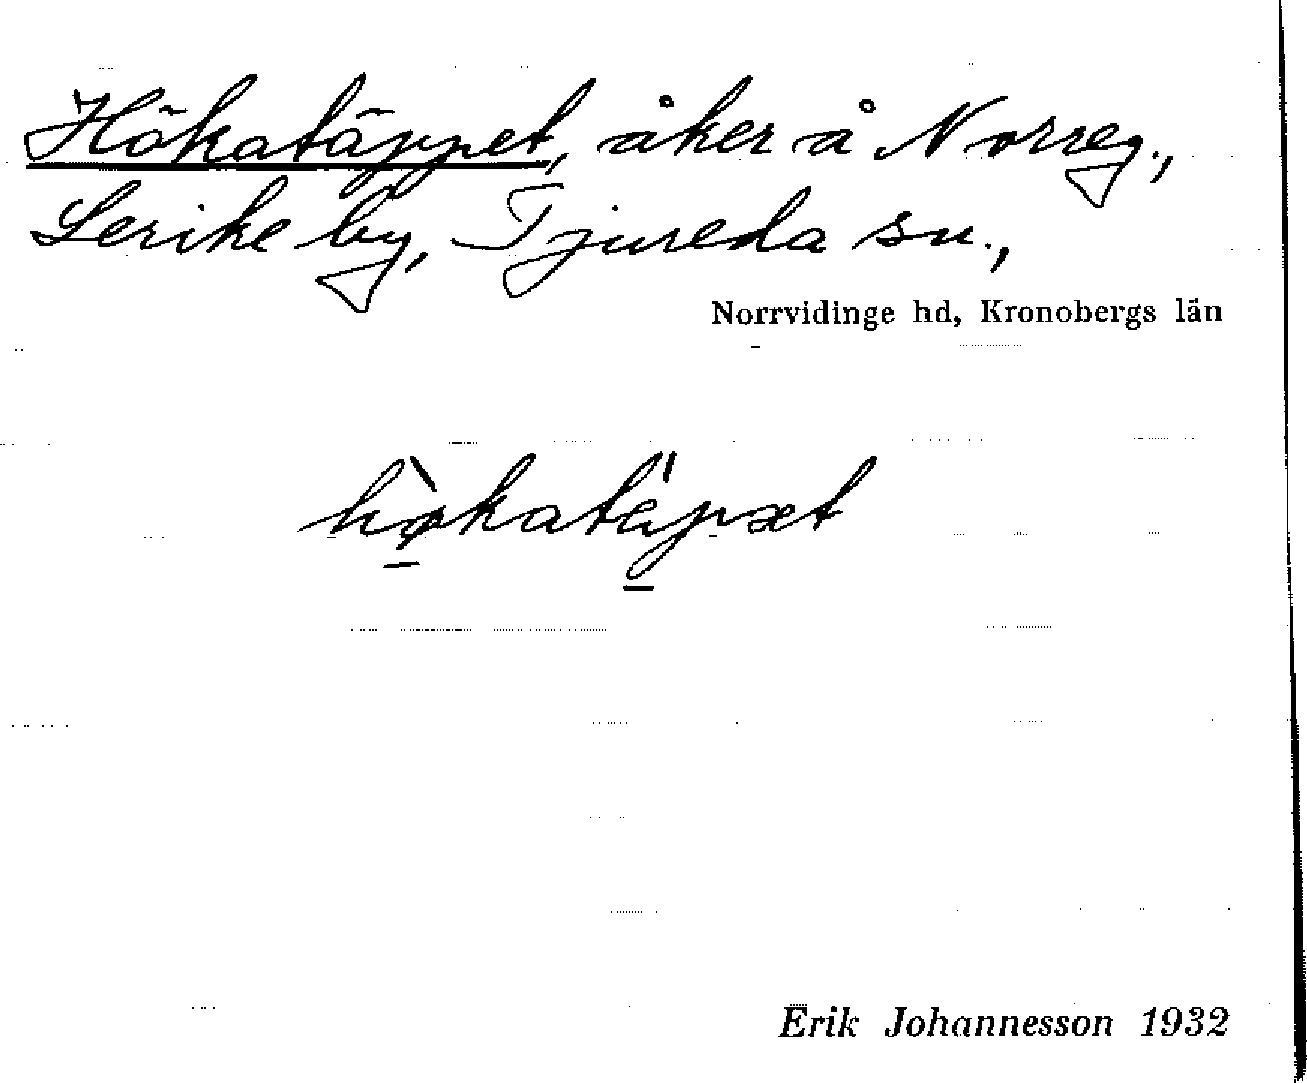 Hökatäppet, åker å Norreg.,
Lerike by, Tjureda sn.,
Norrvidinge hd, Kronobergs län
hø̀katäpæt
Erik Johannesson 1932